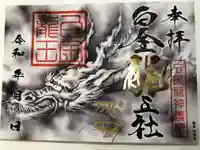 奉拝
白金龍王社
白金
龍王
令和 年 月 日